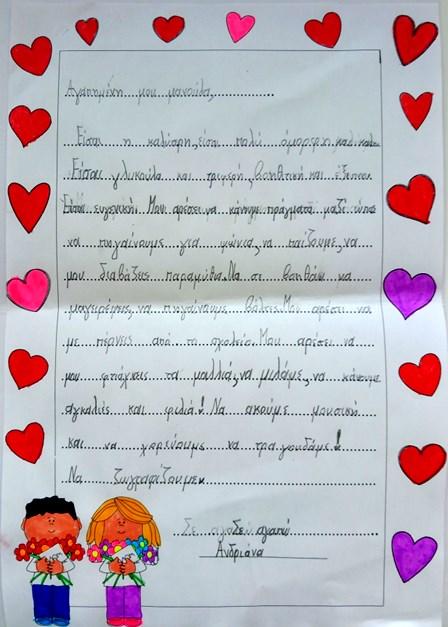 Αγαπημένη μου μανούλα,
Είσαι η καλύτερη, είσαι πολύ όμορφη και
Είσαι γλυκούλα και τρυφερή, βοηθητική και έξυπνη.
Είσαι ευγενική. Μου αρέσει να κάνουμε πράγματα μαζί όπως
να πηγαίνουμε για ψώνια, να παίζουμε, να
μου διαβάζεις παραμύθια. Να σε βοηθάω να
μαγειρέψεις, να πηγαίνουμε βόλτες. Μου αρέσει να
με πέρνεις από το σχολείο. Μου αρέσει να
μου φτιάχνεις τα μαλλιά, να μιλάμε, να κάνουμε
αγκαλιές και φιλιά! Να ακούμε μουσική
και να χορεύουμε να τραγουδάμε!
Να ζωγραφίζουμε.
Σε αγαπώ
Ανδριάνα